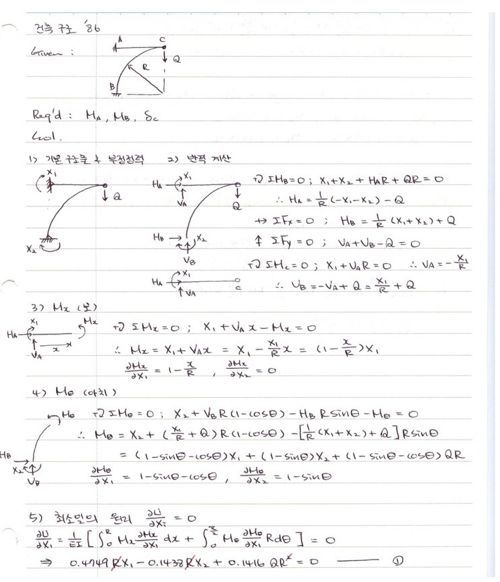 건축구조 '86
Given :
A C
Q
R
B
Req'd : MA, MB, δc
Sol.
1) 기본 구조물 & 부정정력 2) 반력 계산
X1 Q X2
HA X1 VA Q HB X2 VB
↷ΣMB=0 ; X1+X2 + HAR + QR = 0
∴ HA = 1/R (-X1-X2) - Q
→ ΣFx=0 ; HB = 1/R (X1+X2) + Q
↑ ΣFy=0 ; VA+VB-Q = 0
HA X1 VA C
↷ΣMc=0 ; X1+VAR = 0 ∴ VA = - X1/R
∴ VB = -VA + Q = X1/R + Q
3) Mx (보)
HA X1 VA x Mx
↷ΣMx=0 ; X1 + VAx - Mx = 0
∴ Mx = X1 + VAx = X1 - X1/R x = (1 - x/R) X1
∂Mx/∂X1 = 1 - x/R , ∂Mx/∂X2 = 0
4) Mθ (아치)
Mθ HB X2 VB
↷ΣMθ=0 ; X2 + VBR(1-cosθ) - HBRsinθ - Mθ = 0
∴ Mθ = X2 + (X1/R + Q) R(1-cosθ) - [1/R (X1+X2) + Q] Rsinθ
= (1-sinθ-cosθ)X1 + (1-sinθ)X2 + (1-sinθ-cosθ) QR
∂Mθ/∂X1 = 1-sinθ-cosθ , ∂Mθ/∂X2 = 1-sinθ
5) 최소일의 원리 ∂U/∂X1 = 0
∂U/∂X1 = 1/EI [ ∫0^R Mx ∂Mx/∂X1 dx + ∫0^π/2 Mθ ∂Mθ/∂X1 Rdθ ] = 0
⇒ 0.4749 RX1 - 0.1438 RX2 + 0.1416 QR² = 0 —— ①